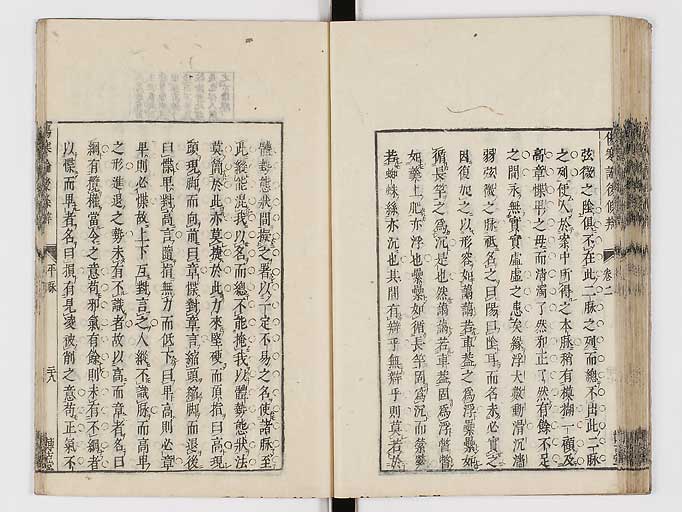 弦微之陰俱不在此二脉之列而總不出此二脉
之列使入於案中所得之本脉稍有模糊一頋及
高章惵卑之毋而清濁了然邪正了然有餘不足
之間永無實實虛虛之患矣緣浮大數動滑沉濇
弱弦微之脉祇名之曰陽曰陰耳而名未必實之
因復加之以形容如藹藹若車葢之爲浮纍纍如
循長竿之爲沉是也然藹藹若車葢固爲浮瞥瞥
如羹上肥亦浮也纍纍如循長竿固爲沉而縈縈
若蜘蛛絲亦沉也其間有辯乎無辯乎則莫若於
體勢態狀間擬之署以一定不易之名使諸脉至
此縱能混我以名而總不能掩我以體勢態狀法
莫簡於此亦莫捷於此力來堅硬而頂指曰高現
頭現脚而向前曰章惵對章言縮頭縮脚而退後
曰惵卑對高言隨指無力而低下曰卑高則必章
卑則必惵故上下互對言之人縱不識脉而高卑
之形進退之勢未有不識者故以高而章者名曰
綱有攬權當令之意苟邪氣有餘則未有不綱者
以惵而卑者名曰損有見凌被削之意苟正氣不
卷二
平脉
二八